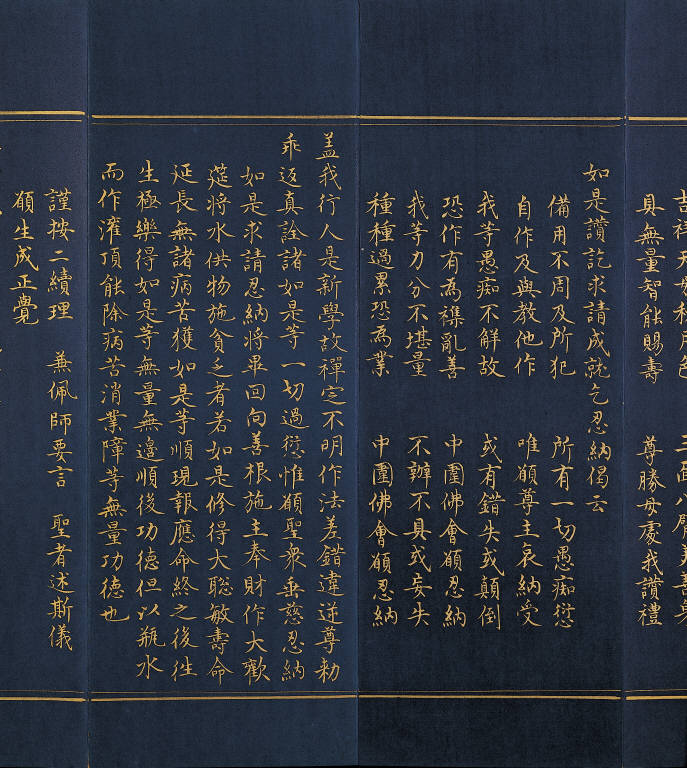 吉祥天女種月色 三面八臂美善身
具無量智能賜壽 尊勝母處我讚禮
如是讚訖求請成就乞忍納偈云
備用不周及所犯 所有一切愚痴愆
自作及與教他作 唯願尊主哀納受
我等愚痴不解故 或有錯失或顛倒
恐作有為襍亂善 中圍佛會願忍納
我等力分不堪量 不辦不具或妄失
種種過累恐為業 中圍佛會願忍納
盖我行人是新學故禪定不明作法差錯違逆尊勑
乖返真詮諸如是等一切過愆惟願聖衆垂慈忍納
如是求請忍納將畢回向善根施主奉財作大歡
莚將水供物施貧乏者若如是修得大聡敏壽命
延長無諸病苦獲如是等順現報應命終之後徃
生極樂得如是等無量無邉順後功德但以瓶水
而作灌頂能除病苦消業障等無量功德也
謹按二續理 兼佩師要言 聖者述斯儀
願生成正覺